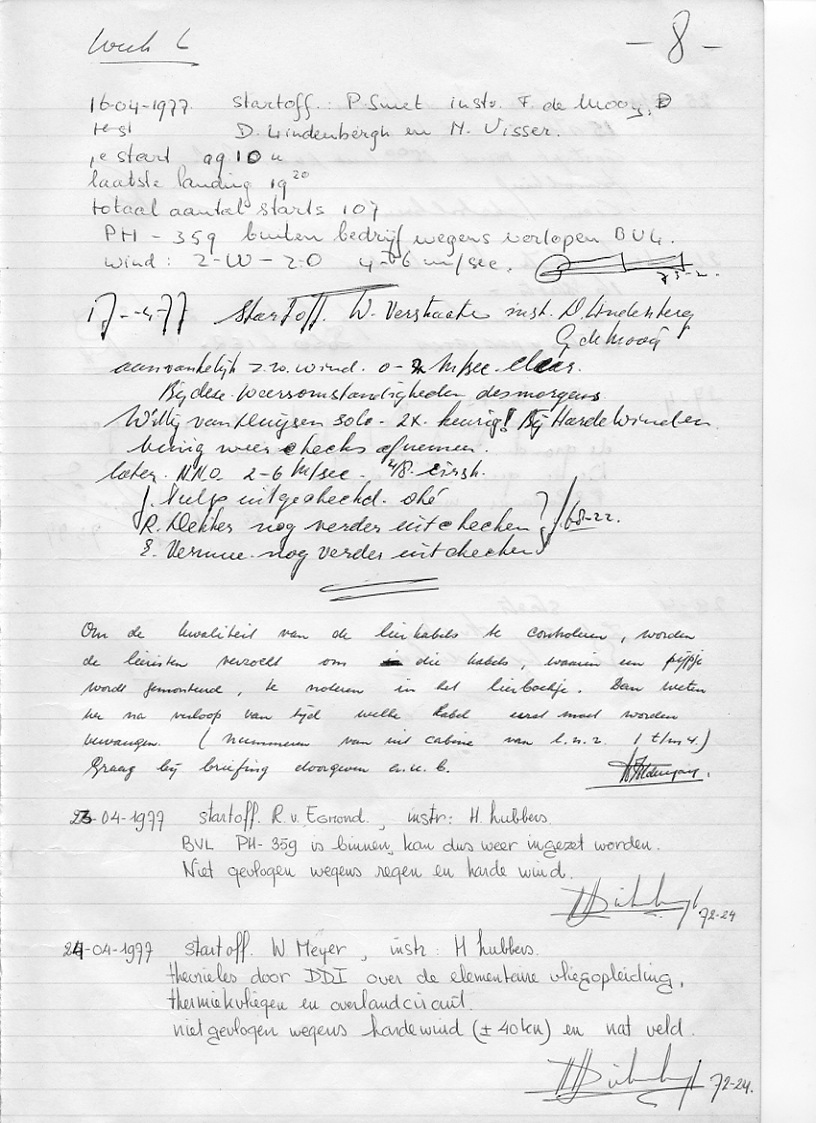 Week 6
- 8 -
16-04-1977. startoff.: P. Smet instr. F. de Mooy, D
test D. Lindenbergh en M. Visser.
1e start 0910 u
laatste landing 19 20
totaal aantal starts 107
PH - 359 buiten bedrijf wegens verlopen BVL.
wind: Z-W - Z.O 4-6 m/sec. 73-2.
17-4-77 Startoff. W. Verstraate inst. D. Lindenberg
G. de Mooij
aanvankelijk z.w. wind. 0-2 M/sec. clear.
Bij deze weersomstandigheden desmorgens
Willy van Huijsen solo - 2x. keurig! Bij Harde Winden.
weer checks afnemen.
later. N.N.O. 2-6 M/sec - 4/8. cirrh.
uitgecheckt. oké
R. Dekker nog verder uitchecken? 68-22.
E. Vermue nog verder uitchecken
Om de kwaliteit van de lierkabels te controleren, worden
de lieristen verzocht om die kabels, waarin een pijpje
wordt gemonteerd, te noteren in het lierboekje. Dan weten
we na verloop van tijd welke kabel eerst moet worden
vervangen. (nummeren van uit cabine van l.n.r. 1 t/m 4.)
Graag bij briefing doorgeven s.v.b.
23-04-1977 startoff. R. v. Egmond., instr: H. Lubbers.
BVL PH-359 is binnen, kan dus weer ingezet worden.
Niet gevlogen wegens regen en harde wind.
72-24
24-04-1977 startoff. W Meyer, instr: H Lubbers.
theorieles door DDI over de elementaire vliegopleiding,
thermiekvliegen en overlandcircuit.
niet gevlogen wegens harde wind (± 40 kn) en nat veld.
72-24.